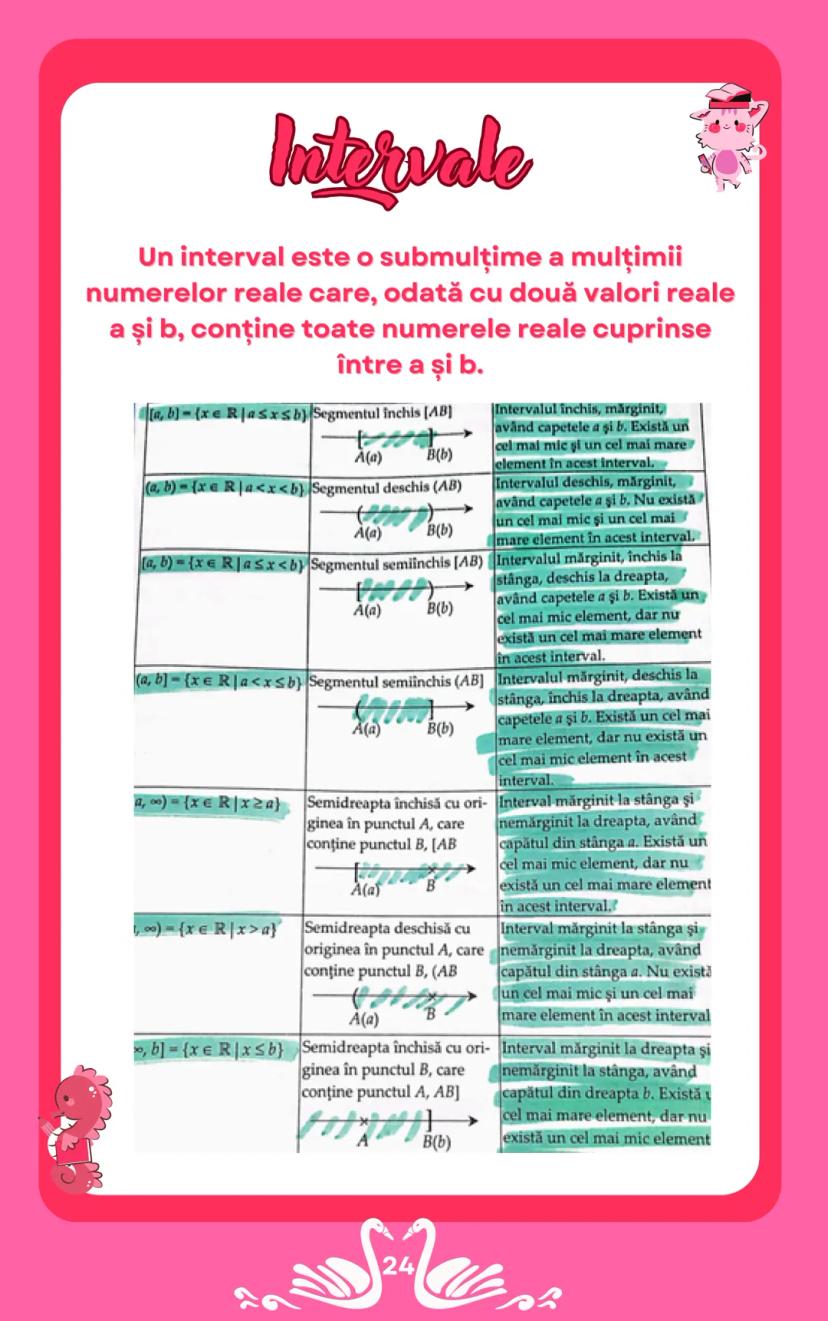 Intervale
Un interval este o submulțime a mulțimii
numerelor reale care, odată cu două valori reale
a și b, conține toate numerele reale cuprinse
între a și b.
[a, b] = {x ∈ ℝ | a ≤ x ≤ b}
Segmentul închis [AB]
A(a) B(b)
Intervalul închis, mărginit,
având capetele a şi b. Există un
cel mai mic şi un cel mai mare
element în acest interval.
(a, b) = {x ∈ ℝ | a < x < b}
Segmentul deschis (AB)
A(a) B(b)
Intervalul deschis, mărginit,
având capetele a şi b. Nu există
un cel mai mic şi un cel mai
mare element în acest interval.
[a, b) = {x ∈ ℝ | a ≤ x < b}
Segmentul semiînchis [AB)
A(a) B(b)
Intervalul mărginit, închis la
stânga, deschis la dreapta,
având capetele a şi b. Există un
cel mai mic element, dar nu
există un cel mai mare element
în acest interval.
(a, b] = {x ∈ ℝ | a < x ≤ b}
Segmentul semiînchis (AB]
A(a) B(b)
Intervalul mărginit, deschis la
stânga, închis la dreapta, având
capetele a şi b. Există un cel mai
mare element, dar nu există un
cel mai mic element în acest
interval.
a, ∞) = {x ∈ ℝ | x ≥ a}
Semidreapta închisă cu ori-
ginea în punctul A, care
conține punctul B, [AB
A(a) B
Interval mărginit la stânga şi
nemărginit la dreapta, având
capătul din stânga a. Există un
cel mai mic element, dar nu
există un cel mai mare element
în acest interval.
, ∞) = {x ∈ ℝ | x > a}
Semidreapta deschisă cu
originea în punctul A, care
conține punctul B, (AB
A(a) B
Interval mărginit la stânga şi
nemărginit la dreapta, având
capătul din stânga a. Nu există
un cel mai mic şi un cel mai
mare element în acest interval
∞, b] = {x ∈ ℝ | x ≤ b}
Semidreapta închisă cu ori-
ginea în punctul B, care
conține punctul A, AB]
A B(b)
Interval mărginit la dreapta şi
nemărginit la stânga, având
capătul din dreapta b. Există
cel mai mare element, dar nu
există un cel mai mic element
24